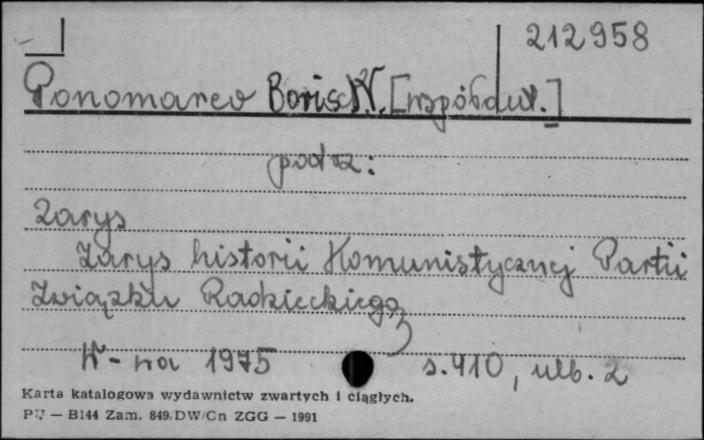 212958
Ponomarev Boris N. [współaut.]
podtz:
Zarys
Zarys historii Komunistycznej Partii
Związku Radzieckiego
W-wa 1975 s. 410, nlb. 2
Karta katalogowa wydawnictw zwartych i ciągłych.
PU — B144 Zam. 849/DW/Cn ZGG — 1991